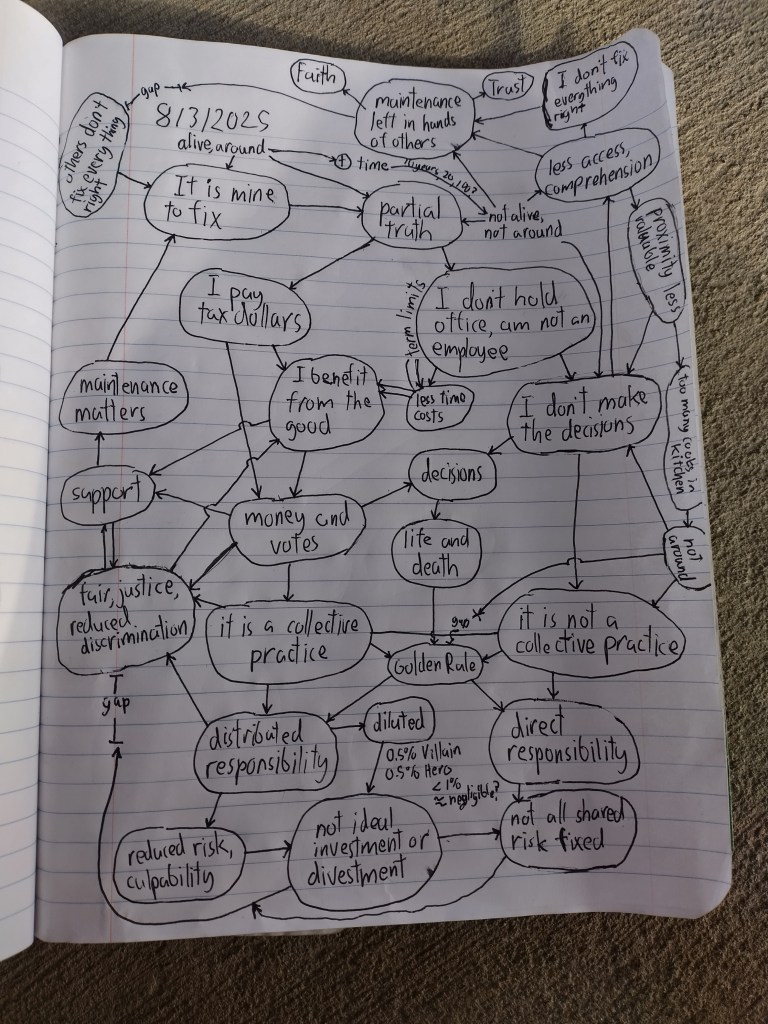 Faith
Trust
I don't fix
everything
right
gap
maintenance
left in hands
of others
8/3/2025
alive, around
others don't
fix everything
right
+ time
less access,
comprehension
It is mine
to fix
partial
truth
not alive,
not around
proximity less
valuable
I pay
tax dollars
term limits
I don't hold
office, am not an
employee
maintenance
matters
I benefit
from the
good
less time
costs
I don't make
the decisions
too many cooks in
kitchen
support
decisions
money and
votes
life and
death
not
around
fair, justice,
reduced
discrimination
it is a collective
practice
gap
it is not a
collective practice
Golden Rule
gap
distributed
responsibility
diluted
0.5% Villain
0.5% Hero
< 1%
≈ negligible?
direct
responsibility
reduced risk,
culpability
not ideal
investment or
divestment
not all shared
risk fixed